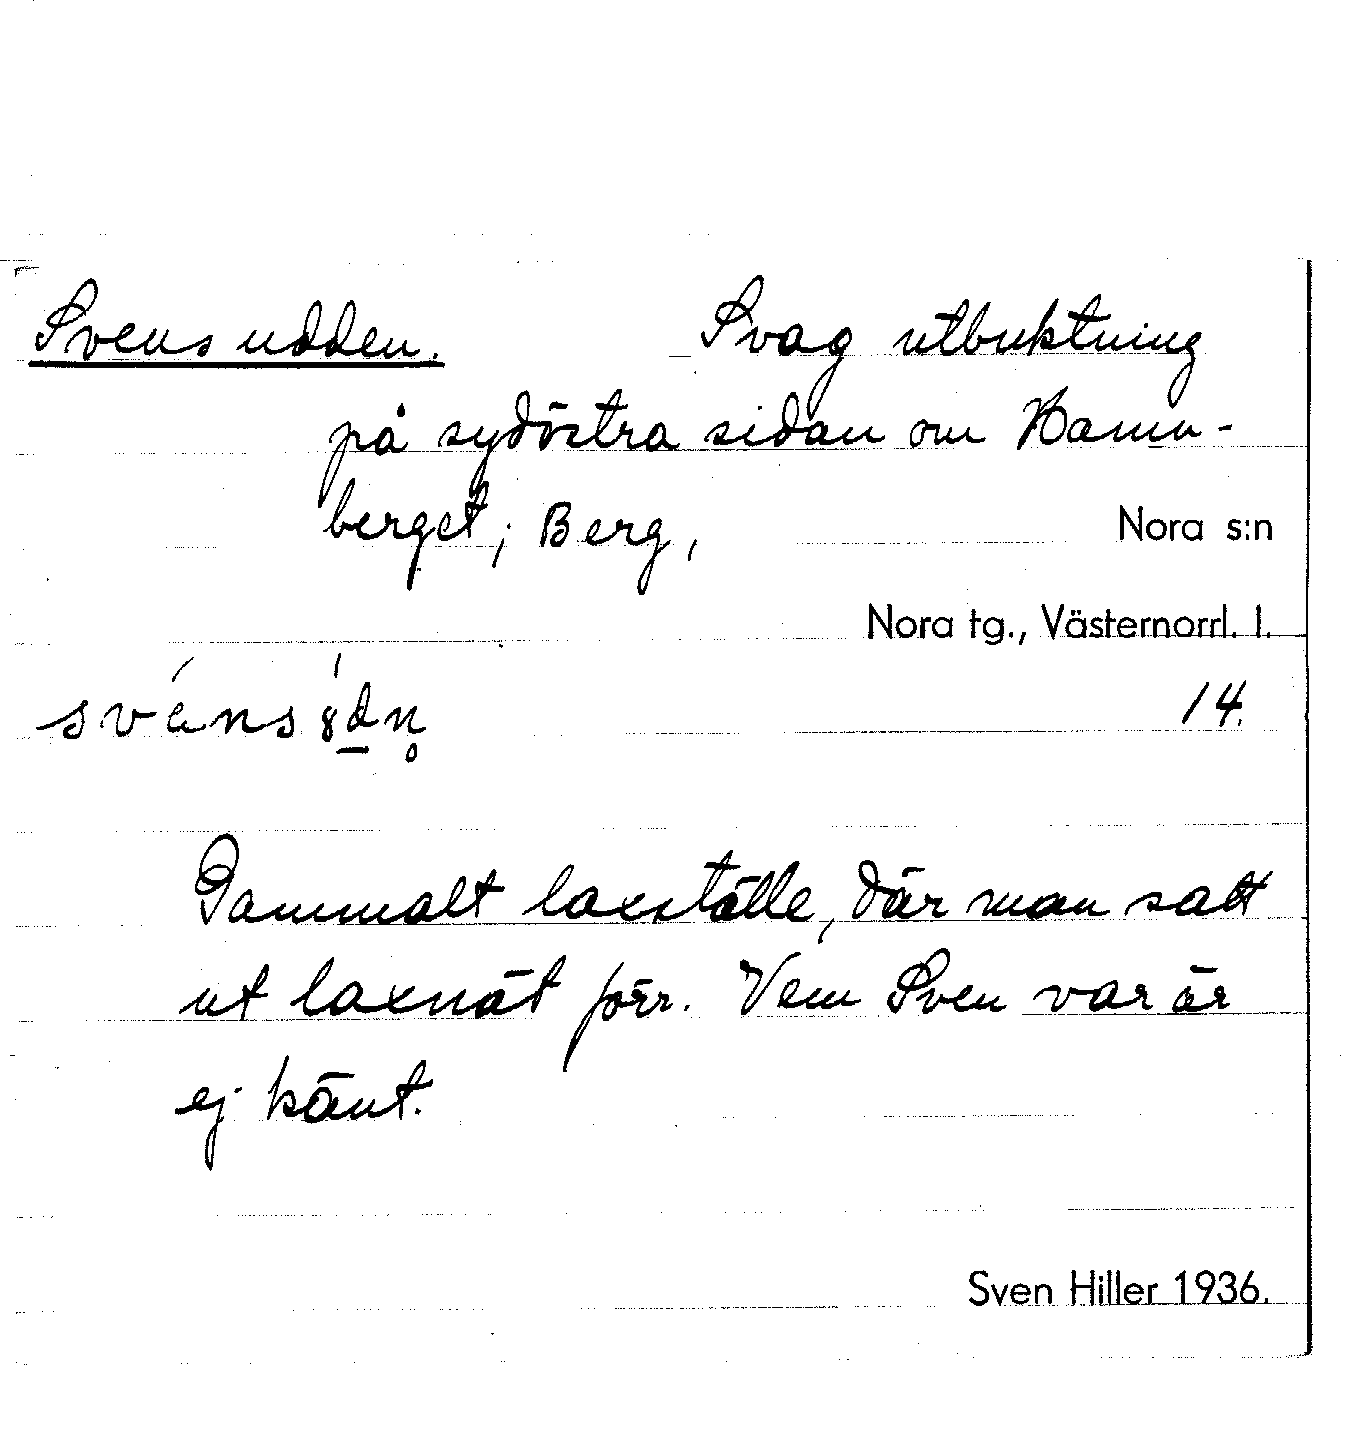 Svens udden. Svag utbuktning
på sydöstra sidan om Hamn-
berget; Berg, Nora s:n
Nora tg., Västernorrl. l.
14.
Gammalt laxställe, där man satt
ut laxnät förr. Vem Sven var är
ej känt.
Sven Hiller 1936.